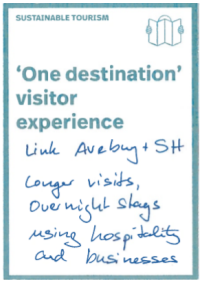 SUSTAINABLE TOURISM
'One destination'
visitor
experience
Link Avebury + SH
Longer visits,
Overnight stays
using hospitality
and businesses